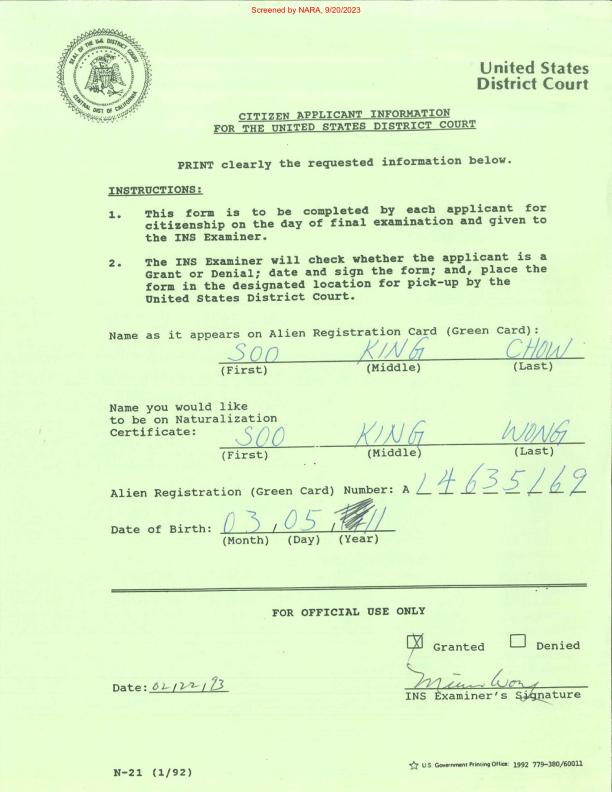 Screened by NARA, 9/20/2023
SEAL OF THE U.S. DISTRICT COURT
CENTRAL DIST OF CALIFORNIA
United States
District Court
CITIZEN APPLICANT INFORMATION
FOR THE UNITED STATES DISTRICT COURT
PRINT clearly the requested information below.
INSTRUCTIONS:
1. This form is to be completed by each applicant for
citizenship on the day of final examination and given to
the INS Examiner.
2. The INS Examiner will check whether the applicant is a
Grant or Denial; date and sign the form; and, place the
form in the designated location for pick-up by the
United States District Court.
Name as it appears on Alien Registration Card (Green Card):
SOO KING CHOW
(First) (Middle) (Last)
Name you would like
to be on Naturalization
Certificate: SOO KING WONG
(First) (Middle) (Last)
Alien Registration (Green Card) Number: A 14635169
Date of Birth: 03, 05, 11
(Month) (Day) (Year)
FOR OFFICIAL USE ONLY
Granted Denied
Date: 02/22/93
Wong
INS Examiner's Signature
N-21 (1/92)
U.S. Government Printing Office: 1992 779-380/60011